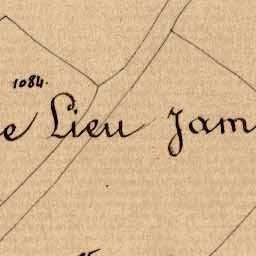 1084.
e Lieu Jam